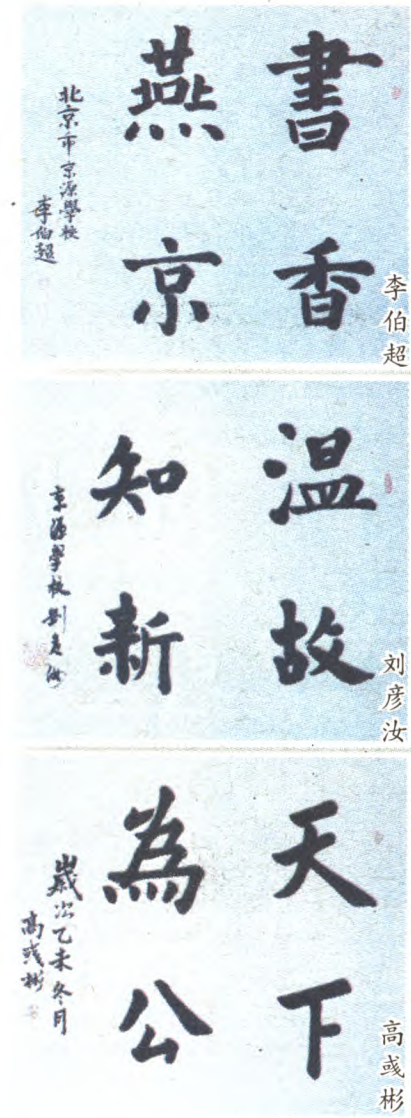 書香
燕京
北京市京源學校
李伯超
李伯超
温故
知新
京源學校刘彦汝
刘彦汝
天下
為公
歲次乙未冬月
高彧彬
高彧彬